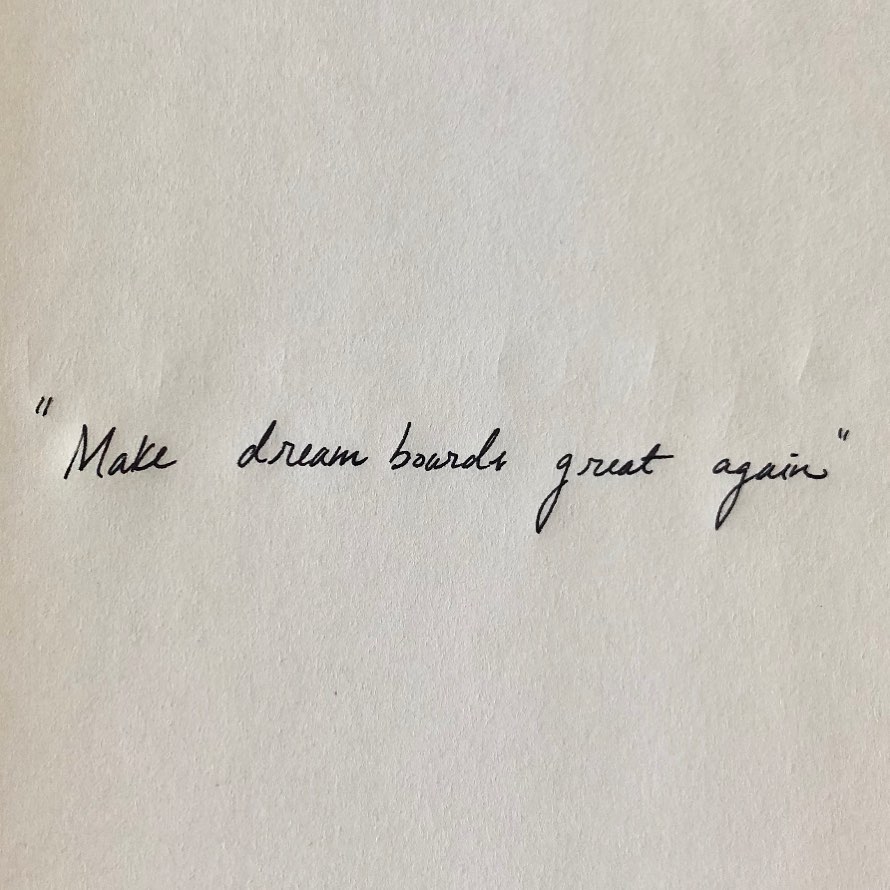 "Make dream boards great again"